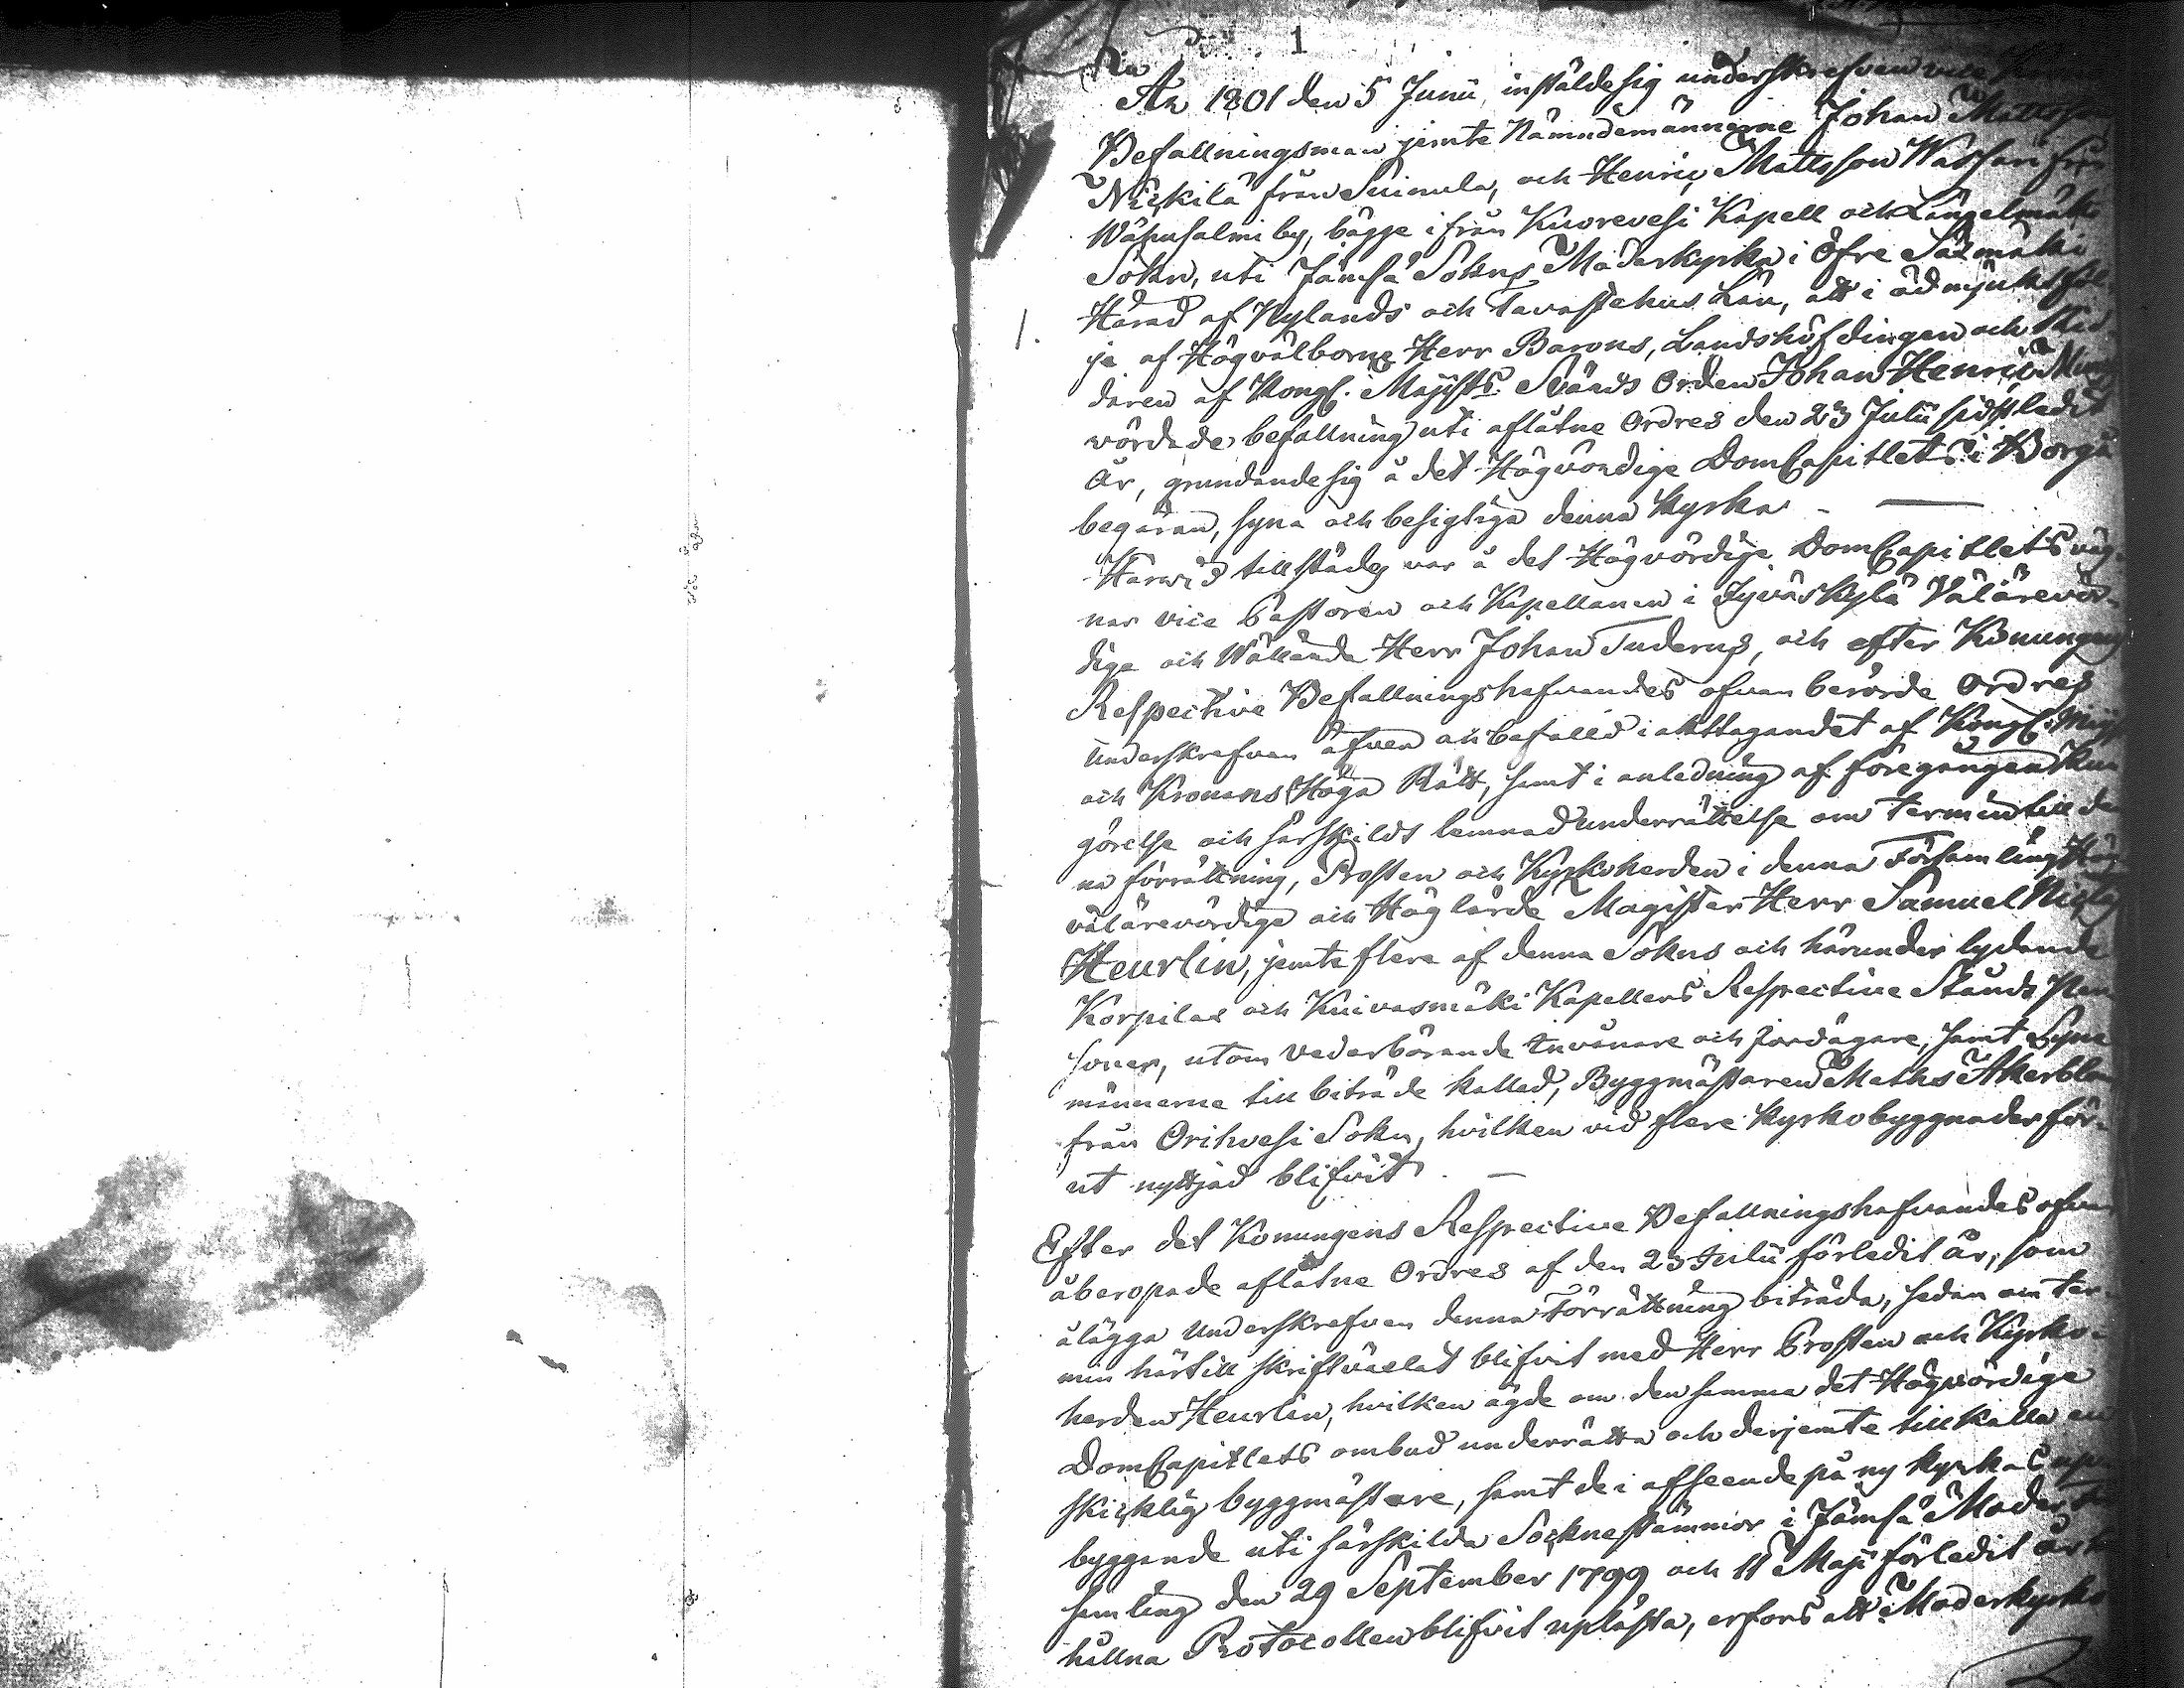 1
År 1801 den 5 Junii, instälde sig underskrefven vice
Befallningsman jemte Nämndemännerne Johan Mattsson
Nickilä från Suinula, och Henric Mattsson Wassari från
Wäpusalmi by, bägge ifrån Kuorevesi Kapell och Längelmäki
Sokn, uti Jämsä Sokns Moderkyrka i Öfre Säxmäki
Härad af Nylands och Tavastehus Län, att i ödmjuk föl-
1.
je af Högvälborne Herr Barons, Landshöfdingen och Rid-
daren af Kongl. Majsts Svärds Orden Johan Henric Muncks
vördade befallning uti aflåtne Ordres den 23 Julii sistledit
År, grundande sig å det Högvördige DomCapitlets i Borgå
begäran, syna och besigtiga denna Kyrka. -
Härvid tillstädes var å det Högvördige DomCapitlets väg-
nar vice Pastoren och Kapellanen i Jyväskylä Välärevör-
dige och Wällärde Herr Johan Tuderus, och efter Konungens
Respective Befallningshafvandes ofvan berörde Ordres
Underskrefven äfven anbefalld iakttagandet af Kongl. Majsts
och Kronans Höga Rätt, samt i anledning af föregången Kun-
görelse och särskilt lemnad underrättelse om termin till den-
na förrättning, Prosten och Kyrkoherden i denna Församling Hög-
välärevördige och Höglärde Magister Herr Samuel Niclas
Heurlin, jemte flere af denna Sokns och härunder lydande
Korpilax och Kuivasmäki Kapellers Respective Stånds Per-
soner, utom vederbörande Invånare och Jordägare, samt Syne
männerne till biträde kallad, Byggmästaren Maths Åkerblom
från Orihvesi Sokn, hvilken vid flere Kyrkobyggnader för-
ut nyttjad blifvit. -
Efter det Konungens Respective Befallningshafvandes ofvan
åberopade aflåtne Ordres af den 23 Julii förledit år, som
ålägga Underskrefven denna Förrättning biträda, sedan om ter-
min härtill skriftväxlat blifvit med Herr Prosten och Kyrko-
herden Heurlin, hvilken ägde om densamma det Högvördige
DomCapitlets ombud underrätta och derjemte tillkalla en
skicklig byggmästare, samt de i afseende på ny kyrkas upp-
byggande uti särskilda Sockne stämmor i Jämsä Moder för-
samling den 29 September 1799 och 11 Maji förledit år
hållna Protocollen blifvit uplästa, erfors att Moderkyrko